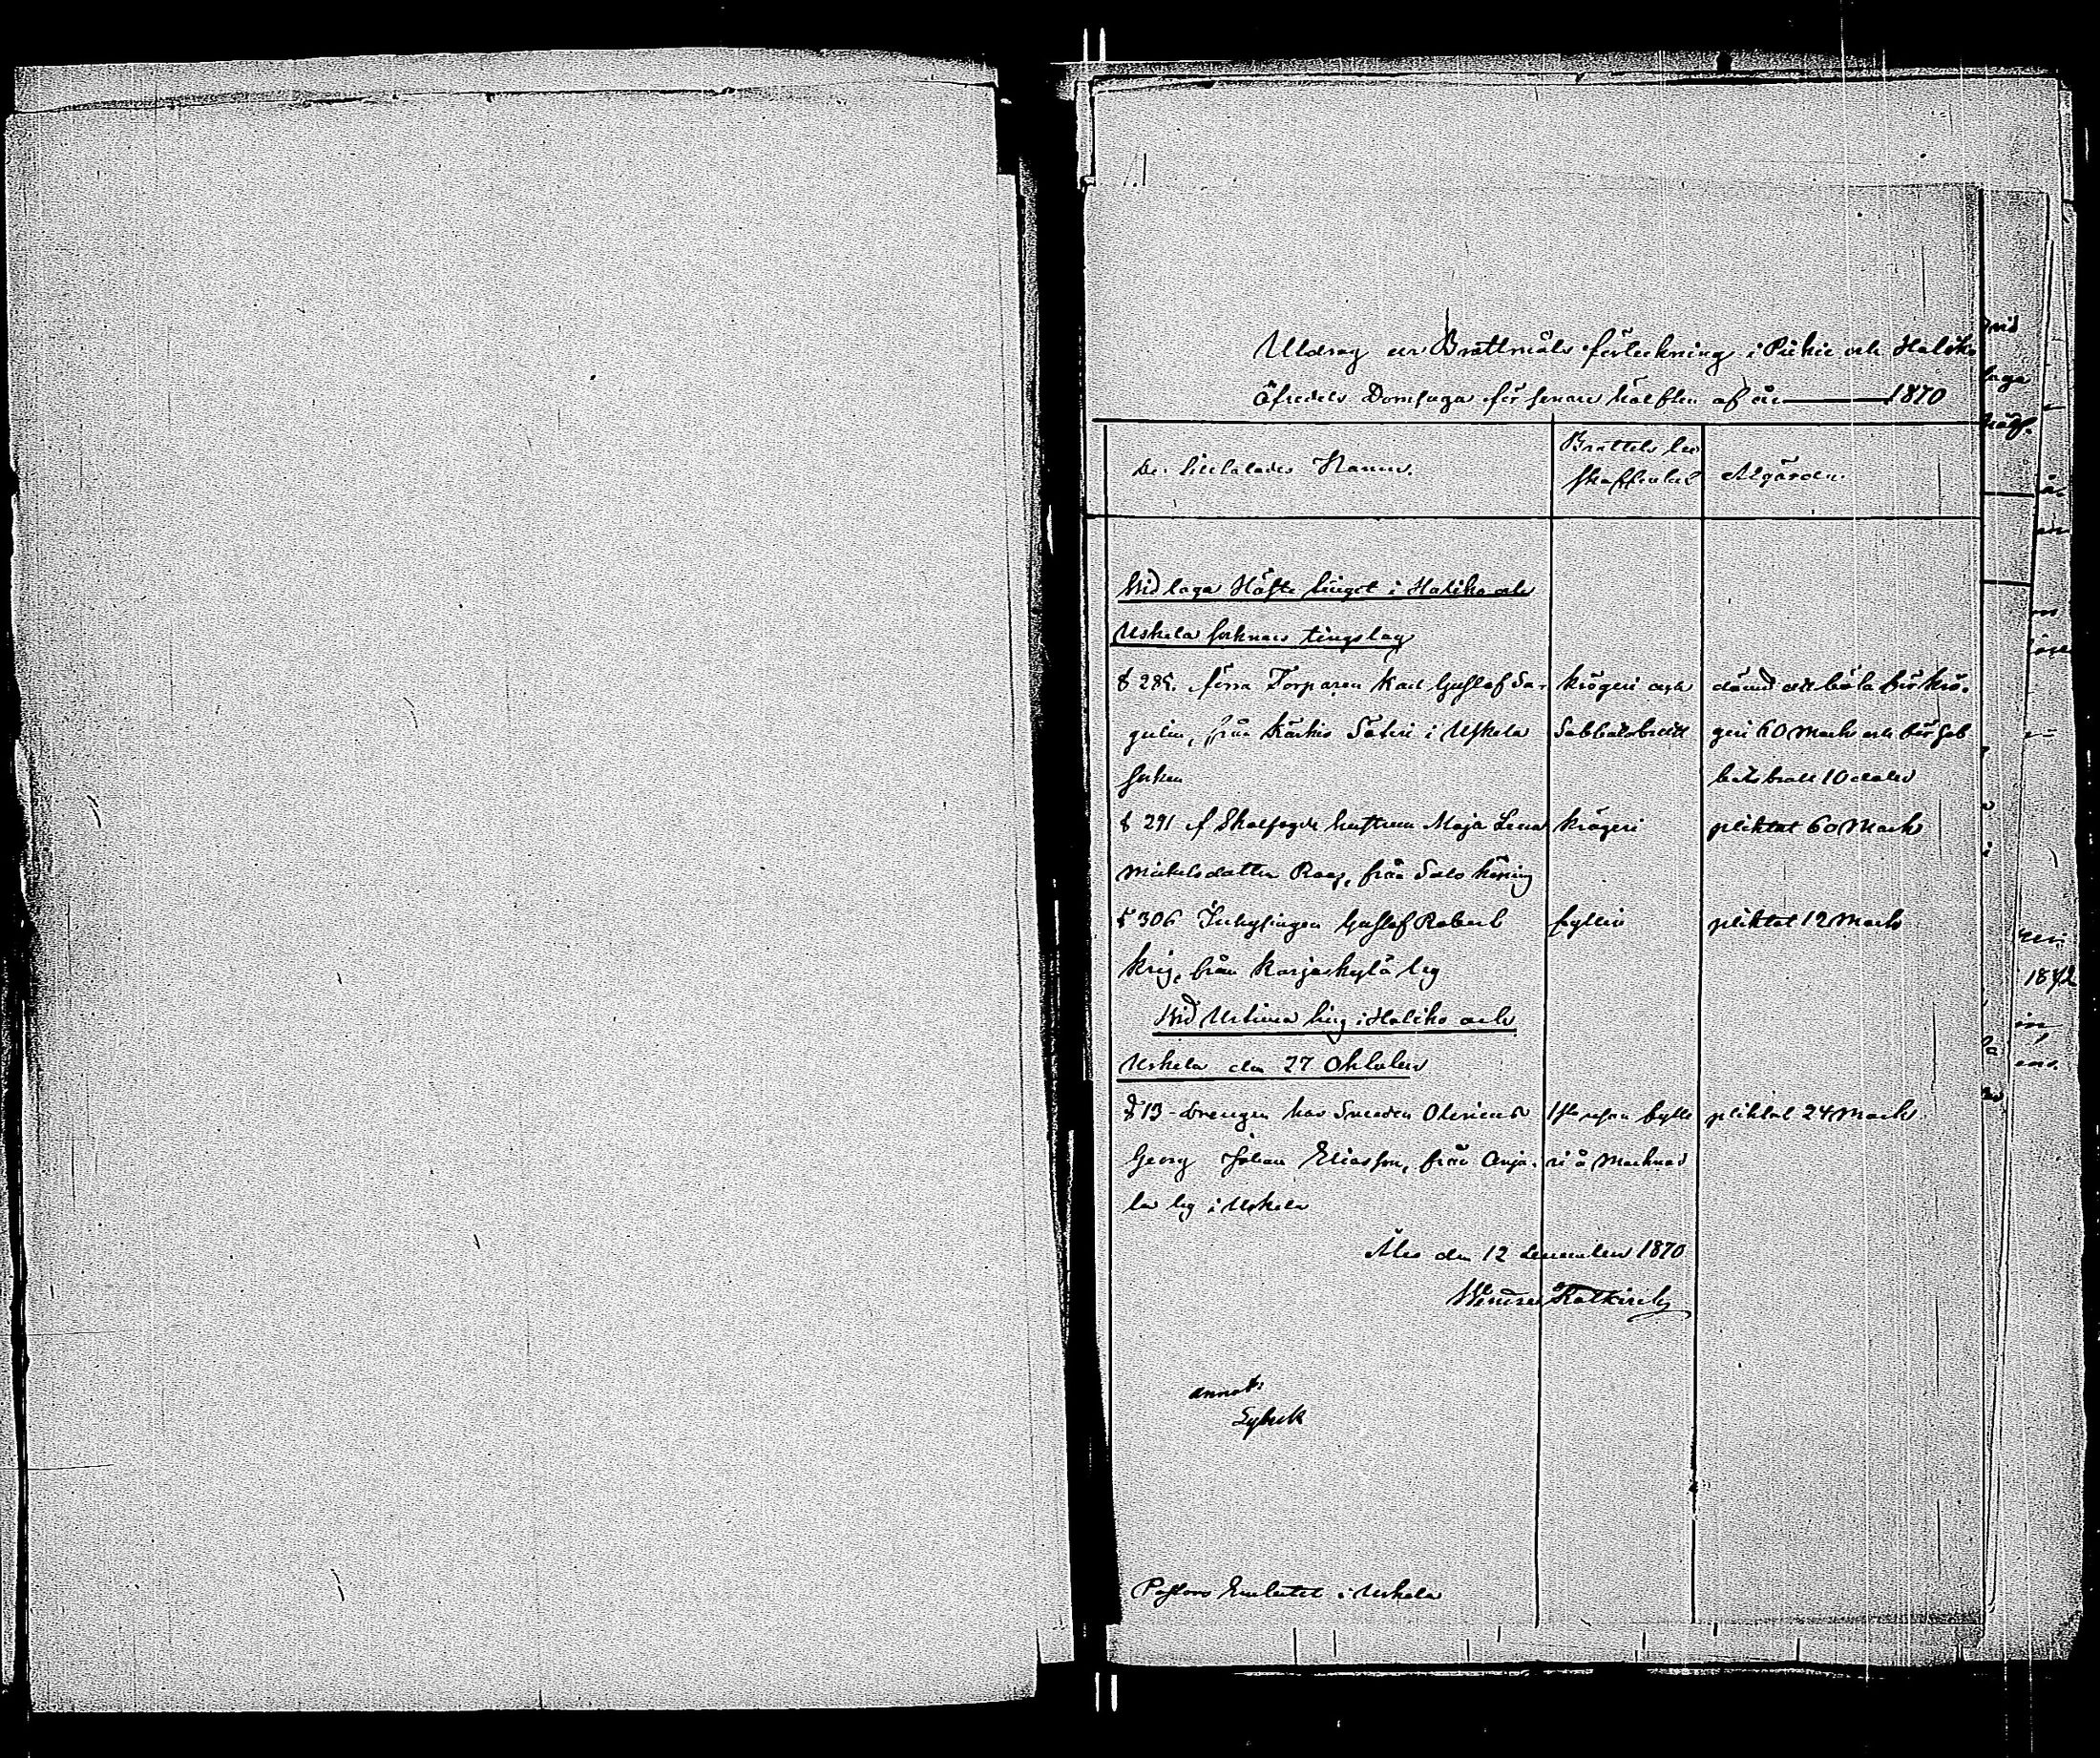 Utdrag ur Brottmåls förteckning i Pikie och Haliko
Öfredels Domsaga för senare hälften af år 1870
De tilltalades Namn.
Brottets be
skaffenhet
Åtgärden.
Vid laga Höste tinget i Haliko och
Uskela soknars tingslag
§ 285. förra Torparen Karl Gustaf Sa-
gulin, från Kärkis Säteri i Uskela
soken
krögeri och
Sabbatsbrott
dömd att böta för krö-
geri 60 Mark och för sab
batsbrott 10 daler
§ 291 f Skolfogde hustrun Maja Lena
Mickelsdotter Roos, från Salo köping
krögeri
pliktat 60 Mark
§ 306 Inhysingen Gustaf Robert
Krig, från Karjaskylä by
fylleri
pliktat 12 Mark
Vid Urtima ting i Haliko och
Uskela den 27 Oktober
§ 13 - Drengen hos Smeden
Georg Johan Eliasson, från Anja-
la by i Uskela
1sta resan fylle
ri å Marknad
pliktat 24 Mark
Åbo den 12 December 1870
annot:
Lybeck
Pastors Embetet i Uskela
vid
laga
1872